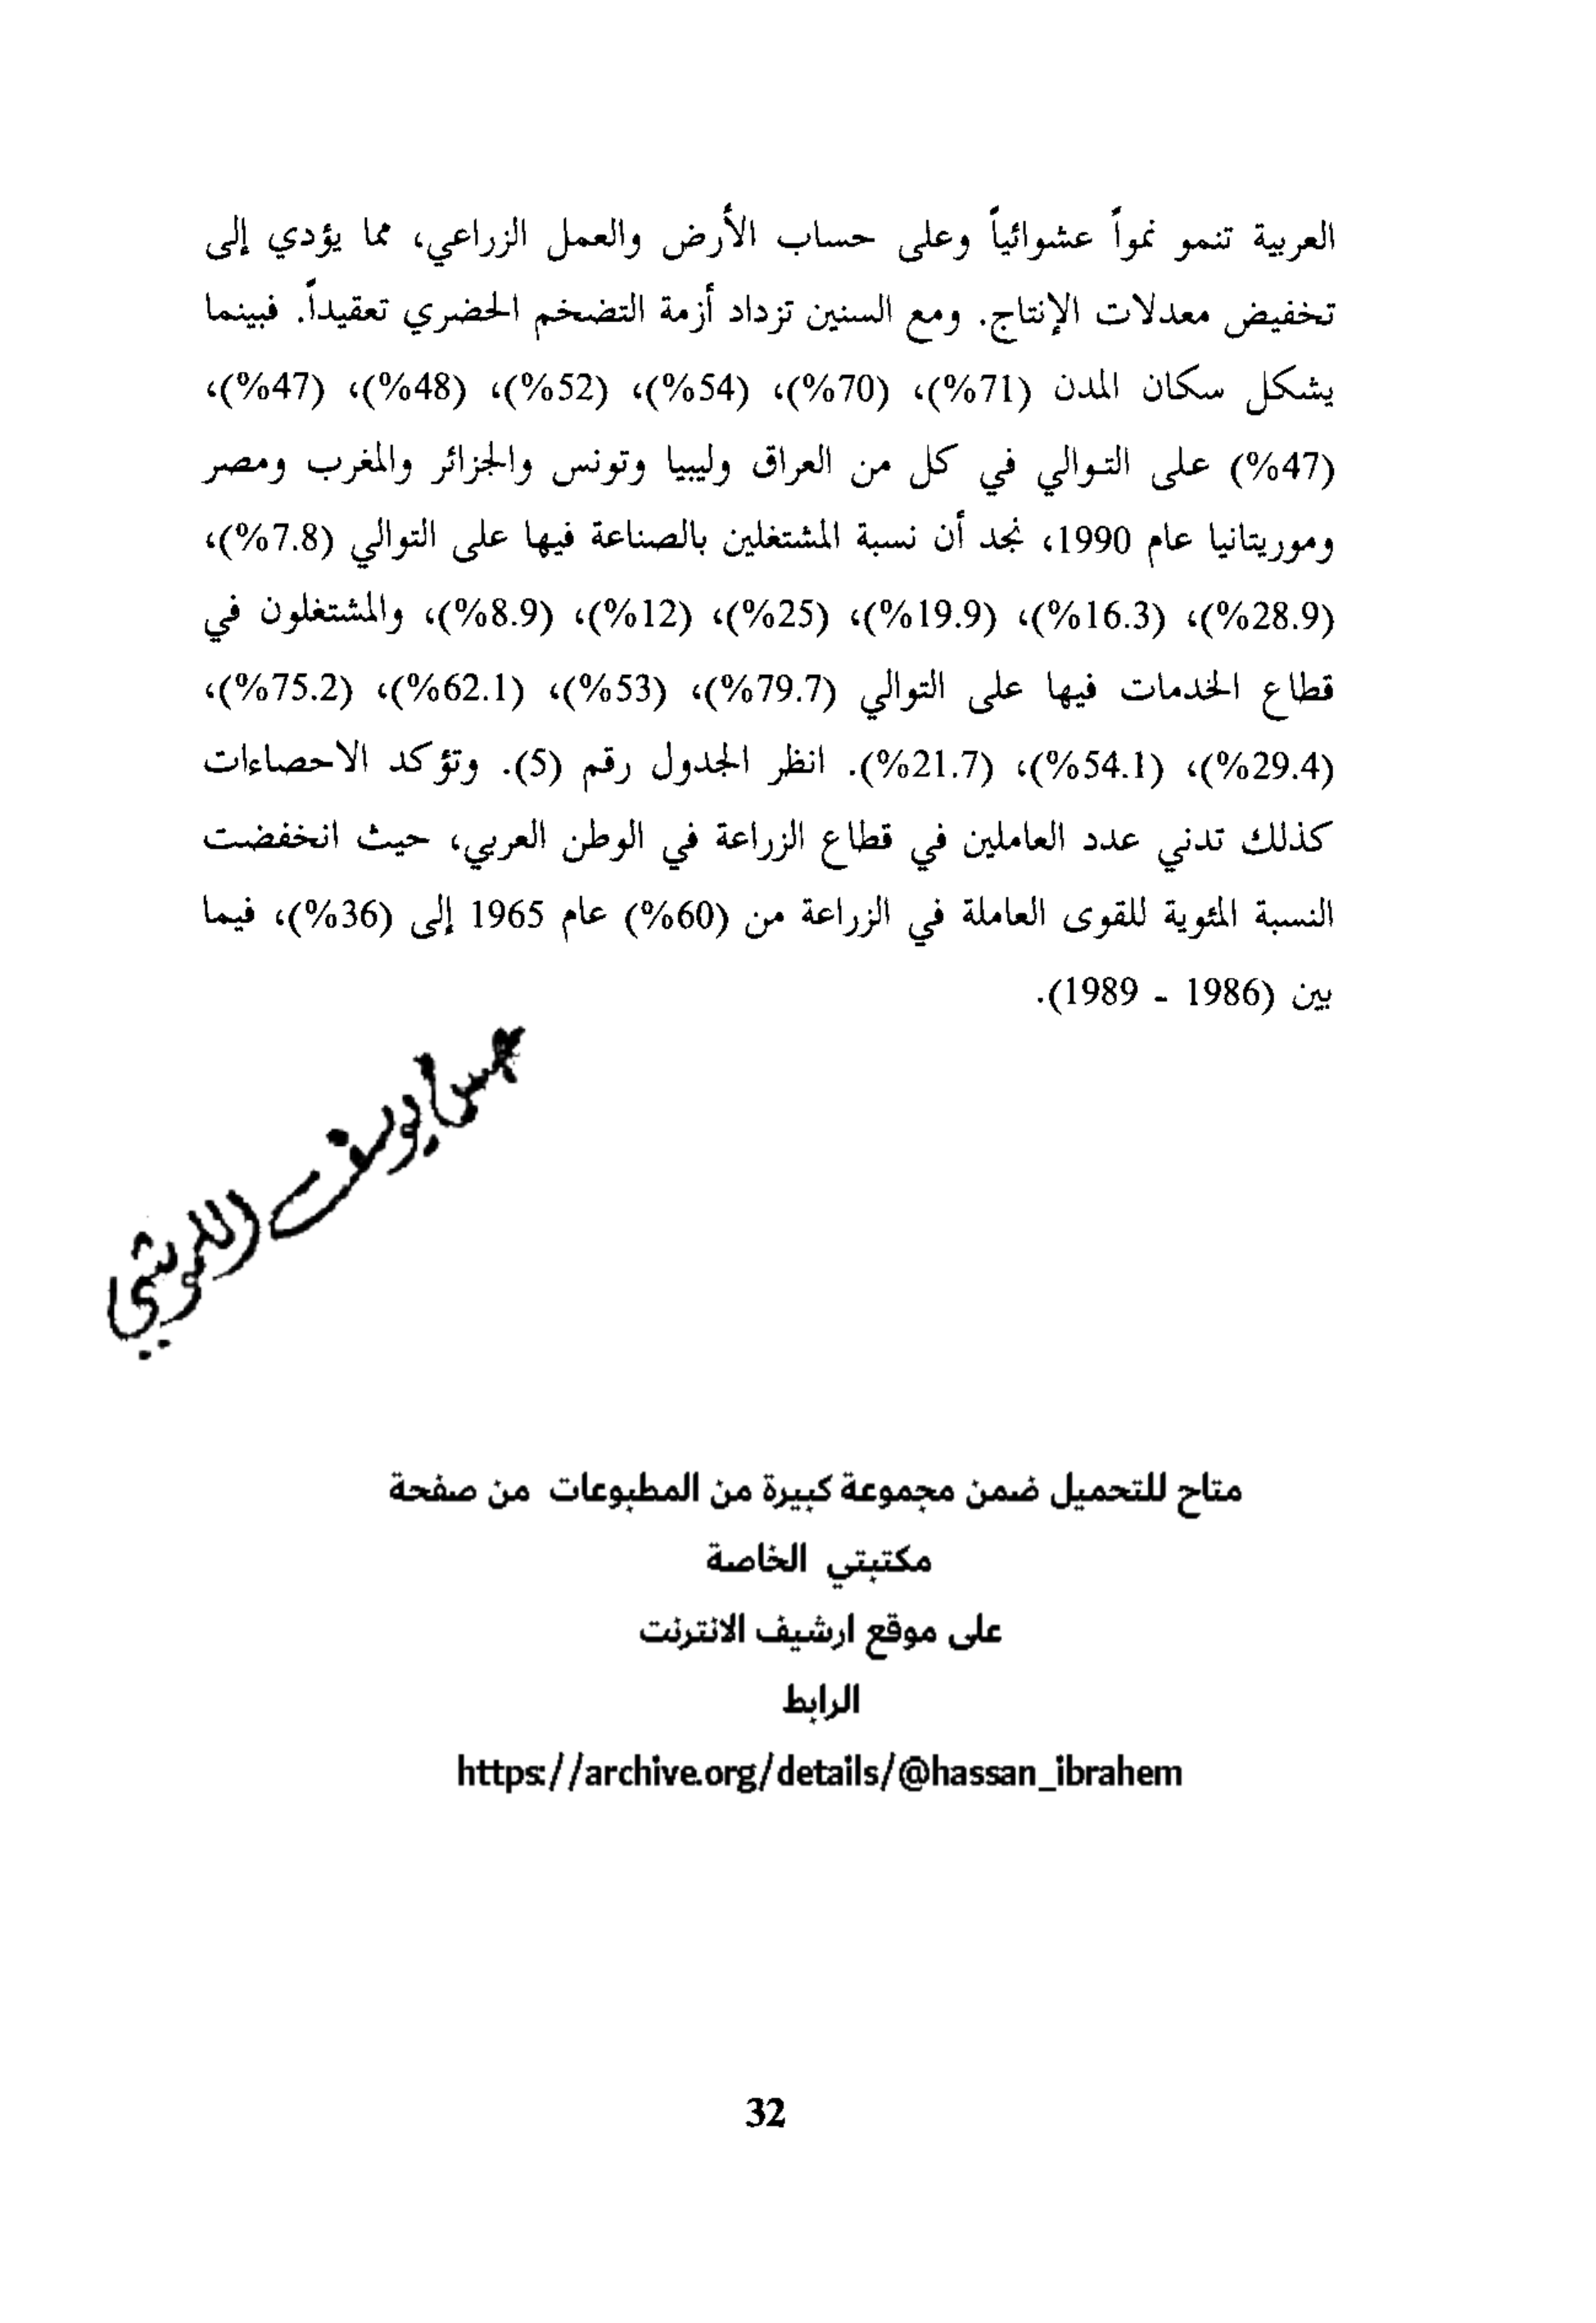 العربية تنمو نمواً عشوائياً وعلى حساب الأرض والعمل الزراعي، مما يؤدي إلى
تخفيض معدلات الإنتاج. ومع السنين تزداد أزمة التضخم الحضري تعقيداً. فبينما
يشكل سكان المدن (71%)، (70%)، (54%)، (52%)، (48%)، (47%)،
(47%) على التوالي في كل من العراق وليبيا وتونس والجزائر والمغرب ومصر
وموريتانيا عام 1990، نجد أن نسبة المشتغلين بالصناعة فيها على التوالي (7.8%)،
(28.9%)، (16.3%)، (19.9%)، (25%)، (12%)، (8.9%)، والمشتغلون في
قطاع الخدمات فيها على التوالي (79.7%)، (53%)، (62.1%)، (75.2%)،
(29.4%)، (54.1%)، (21.7%). انظر الجدول رقم (5). وتؤكد الاحصاءات
كذلك تدني عدد العاملين في قطاع الزراعة في الوطن العربي، حيث انخفضت
النسبة المئوية للقوى العاملة في الزراعة من (60%) عام 1965 إلى (36%)، فيما
بين (1986 - 1989).
يوسف
متاح للتحميل ضمن مجموعة كبيرة من المطبوعات من صفحة
مكتبتي الخاصة
على موقع ارشيف الانترنت
الرابط
https://archive.org/details/@hassan_ibrahem
32